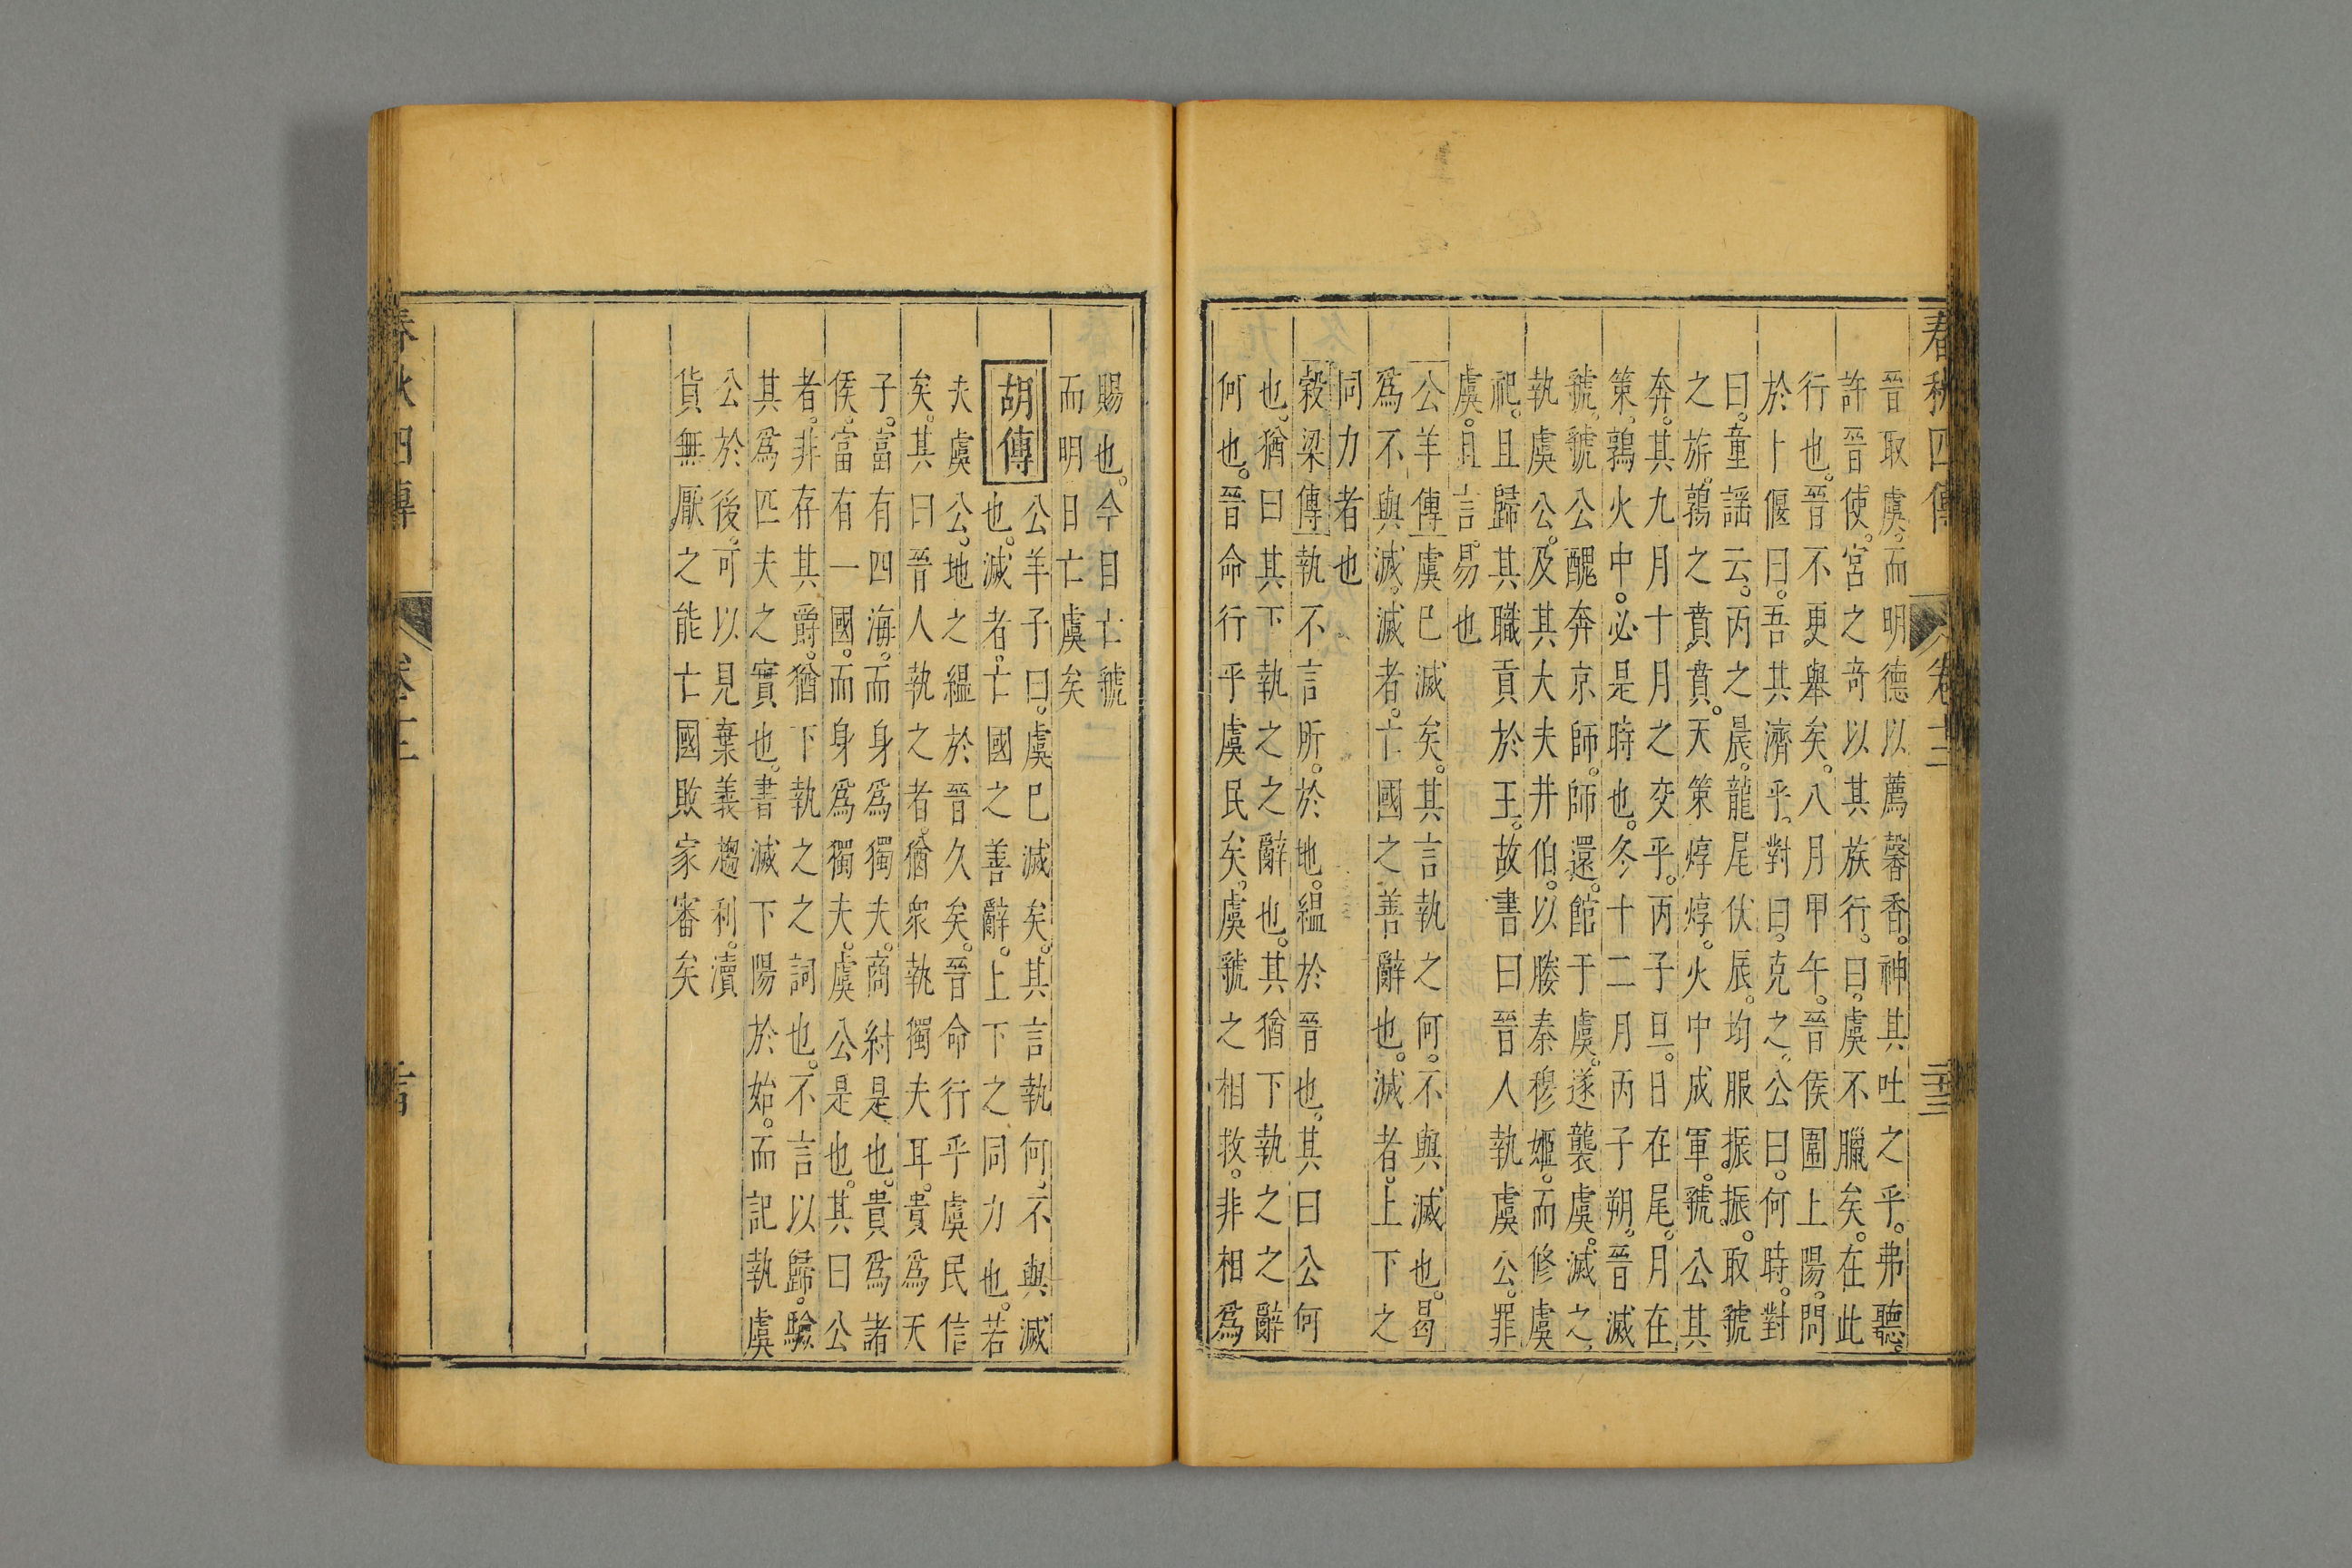 春秋四傳 卷十二 二十三
晉取虞。而明德以薦馨香。神其吐之乎。弗聽。
許晉使。宮之奇以其族行。曰。虞不臘矣。在此
行也。晉不更舉矣。八月甲午。晉侯圍上陽。問
於卜偃曰。吾其濟乎。對曰。克之。公曰。何時。對
曰。童謡云。丙之晨。龍尾伏辰。均服振振。取虢
之旂。鶉之賁賁。天策焞焞。火中成軍。虢公其
奔。其九月十月之交乎。丙子旦。日在尾。月在
策。鶉火中。必是時也。冬十二月丙子朔。晉滅
虢。虢公醜奔京師。師還。館于虞。遂襲虞。滅之。
執虞公。及其大夫井伯。以媵秦穆姬。而修虞
祀。且歸其職貢於王。故書曰晉人執虞公。罪
虞。且言。易也
公羊傳虞巳滅矣。其言執之何。不與滅也。曷
爲不與滅。滅者。亡國之善辭也。滅者。上下之
同力者也
榖梁傳執不言所。於地。緼於晉也。其曰公何
也。猶曰其下執之之辭也。其猶下執之之辭
何也。晉命行乎虞民矣。虞虢之相救。非相爲
賜也。今日亡虢
而明日亡虞矣
胡傳
公羊子曰。虞巳滅矣。其言執何。不與滅
也。滅者。亡國之善辭。上下之同力也。若
夫虞公。地之緼於晉久矣。晉命行乎虞民信
矣。其曰晉人執之者。猶衆執獨夫耳。貴爲天
子。富有四海。而身爲獨夫。商紂是也。貴爲諸
侯。富有一國。而身爲獨夫。虞公是也。其曰公
者。非存其爵。猶下執之之詞也。不言以歸。驗
其爲匹夫之實也。書滅下陽於始。而記執虞
公於後。可以見棄義趨利。瀆
貨無厭之能亡國敗家審矣
春秋四傳